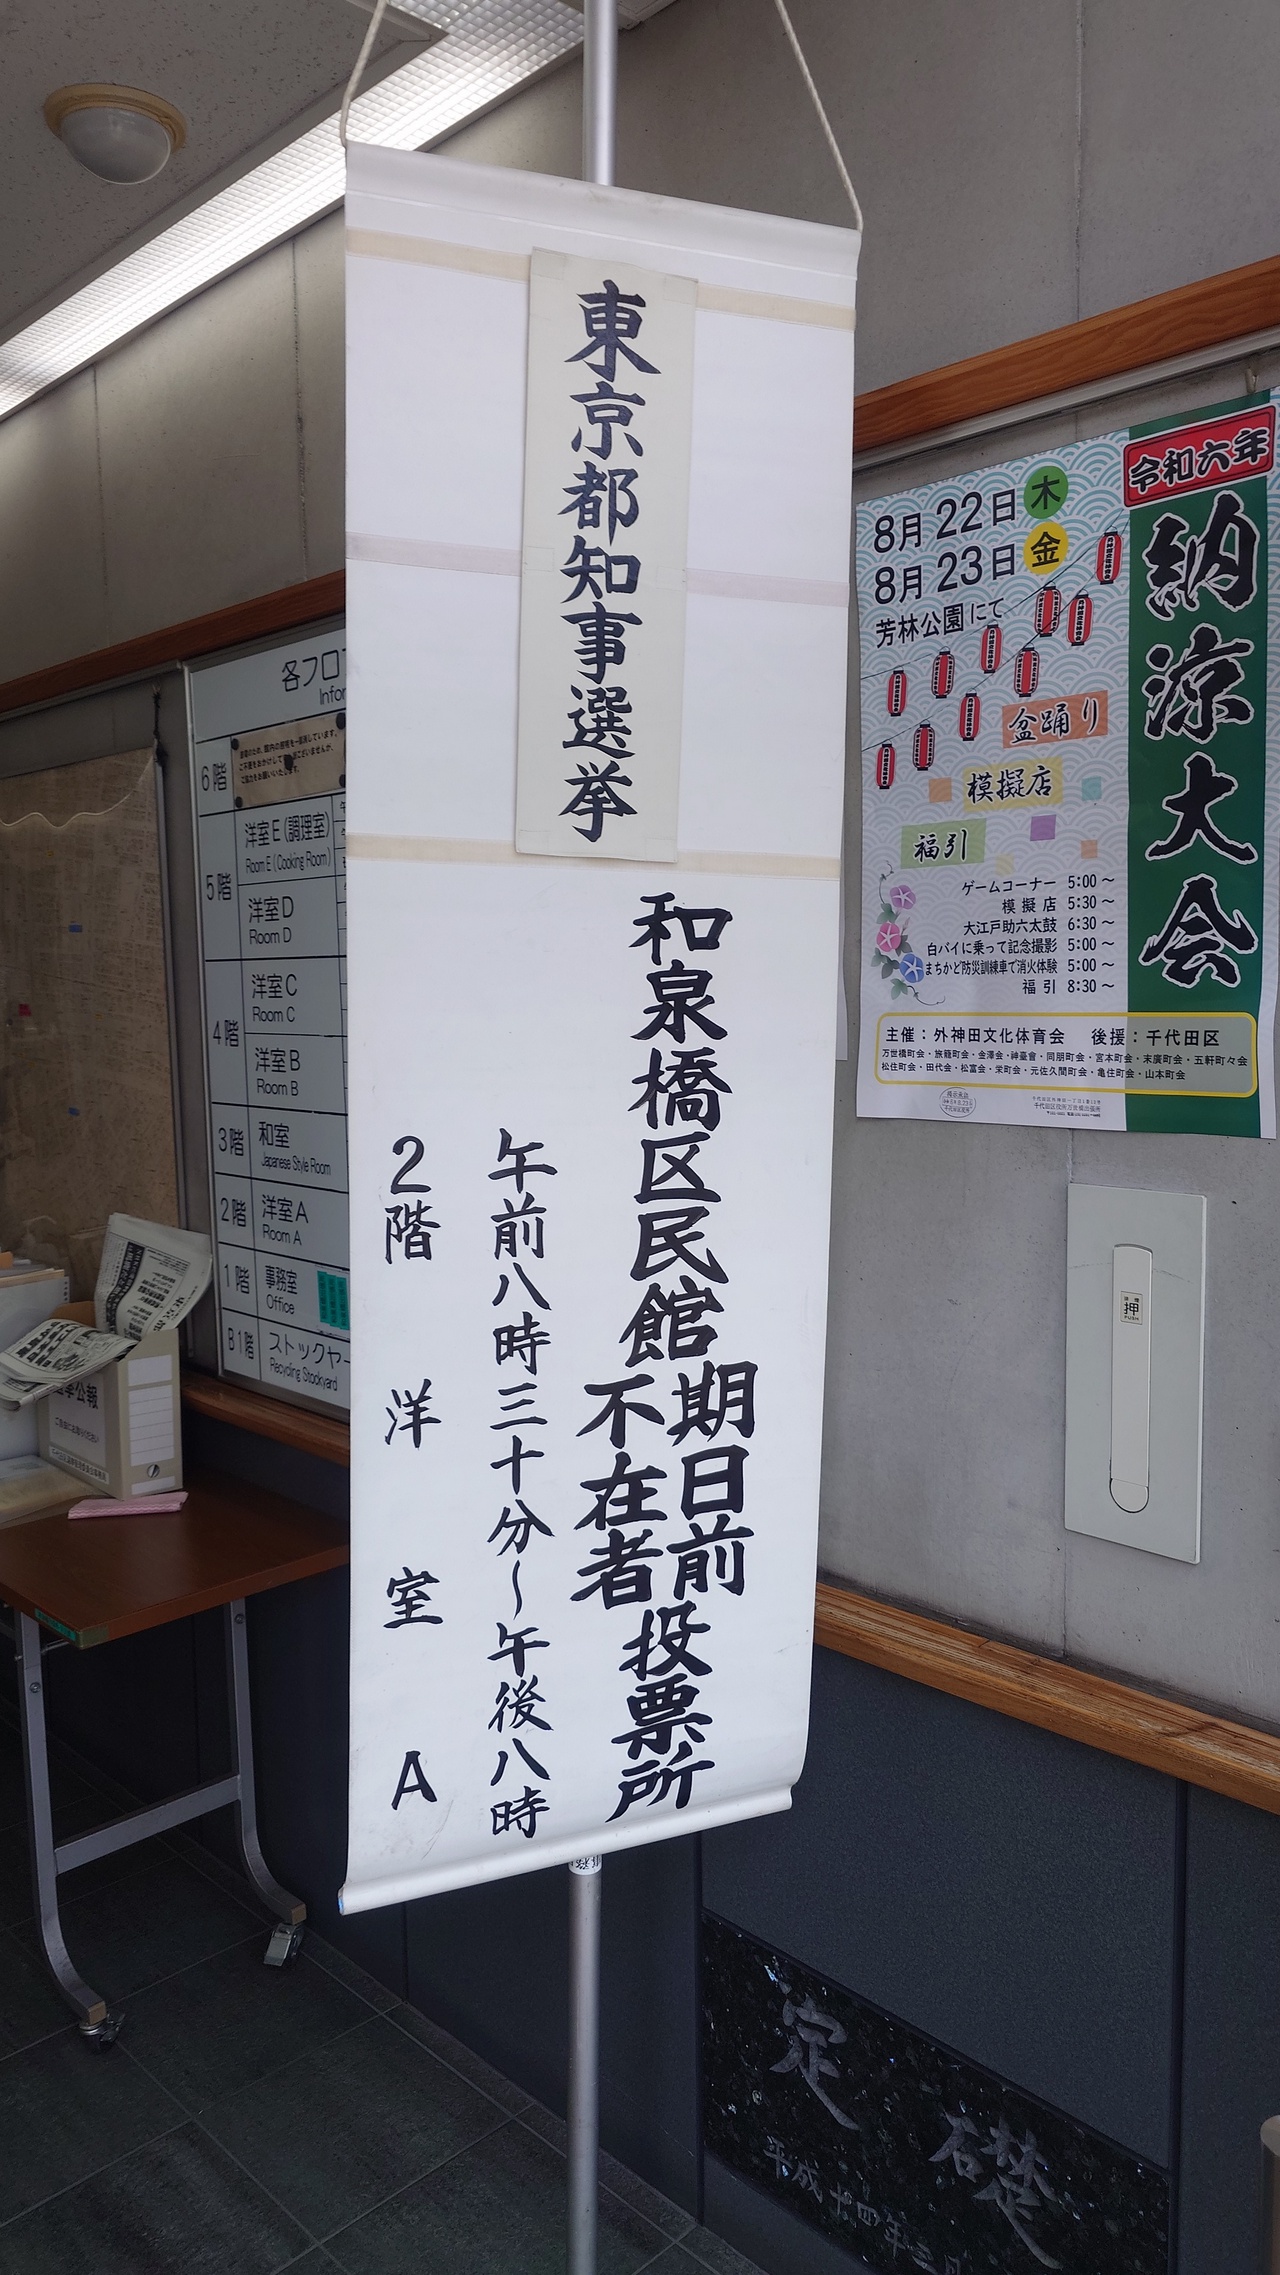 東京都知事選挙
和泉橋区民館
期日前
不在者
投票所
午前八時三十分～午後八時
2階 洋室 A
令和六年
納涼大会
8月22日 木
8月23日 金
芳林公園にて
盆踊り
模擬店
福引
ゲームコーナー 5:00～
模擬店 5:30～
大江戸助六太鼓 6:30～
白バイに乗って記念撮影 5:00～
まちかど防災訓練車で消火体験 5:00～
福引 8:30～
主催：外神田文化体育会 後援：千代田区
万世橋町会・旅籠町会・金澤会・神臺會・同朋町会・宮本町会・末廣町会・五軒町々会
松住町会・田代会・松富会・栄町会・元佐久間町会・亀住町会・山本町会
各フロ
Infor
6階
5階
洋室E(調理室)
Room E (Cooking Room)
洋室D
Room D
4階
洋室C
Room C
洋室B
Room B
3階
和室
Japanese Style Room
2階
洋室A
Room A
1階
事務室
Office
B1階
ストックヤー
Recycling Stockyard
公報
押
PUSH
定礎
平成十四年三月